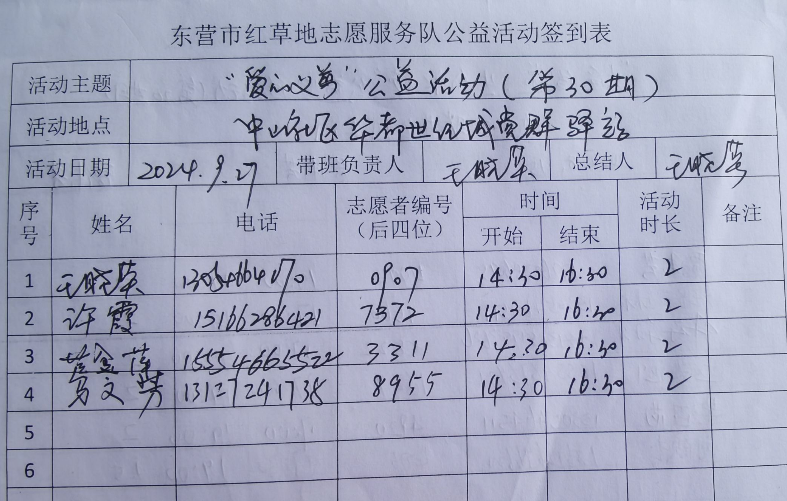 东营市红草地志愿服务队公益活动签到表
活动主题 "爱心义剪"公益活动(第30期)
活动地点 中山社区华都世纪城党群驿站
活动日期 2024.9.27 带班负责人 王晓荣 总结人 王晓荣
序号 姓名 电话 志愿者编号(后四位) 时间 开始 结束 活动时长 备注
1 王晓荣 0907 14:30 16:30 2
2 许霞 15166286421 7372 14:30 16:30 2
3 15554665522 3311 14:30 16:30 2
4 马文芳 13127241738 8955 14:30 16:30 2
5
6